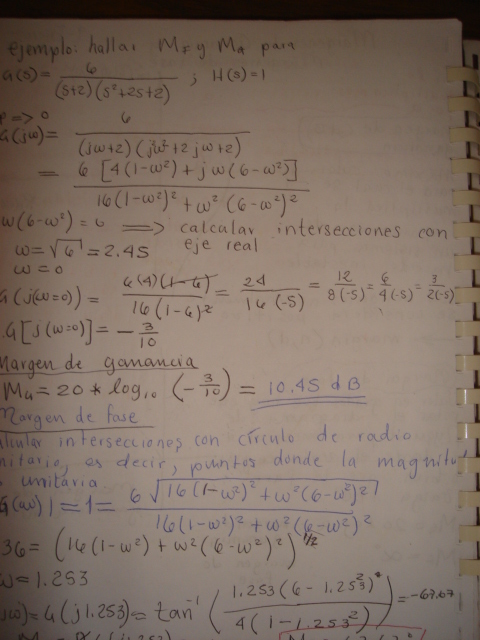 ejemplo: hallar M_F y M_G para
G(s) = 6 / (s+2)(s²+2s+2) ; H(s)=1
=> 0
G(jω) = 6 / (jω+2)(jω²+2jω+2)
= 6 [4(1-ω²) + jω(6-ω²)] / 16(1-ω²)² + ω²(6-ω²)²
ω(6-ω²) = 0 ⟹ calcular intersecciones con
eje real
ω = √6 = 2.45
ω = 0
G(j(ω=0) = 6(4)(1-6) / 16(1-6)² = 24 / 16(-5) = 12 / 8(-5) = 6 / 4(-5) = 3 / 2(-5)
G[j(ω=0)] = - 3/10
Margen de ganancia
M_G = 20 * log₁₀ (- 3/10) = 10.45 dB
Margen de fase
calcular intersecciones con círculo de radio
unitario, es decir, puntos donde la magnitud
unitaria.
G(jω)| = 1 = 6 √16(1-ω²)² + ω²(6-ω²)² / 16(1-ω²)² + ω²(6-ω²)²
36 = (16(1-ω²) + ω²(6-ω²)²)^1/2
ω = 1.253
(jω) = G(j1.253) = tan⁻¹ (1.253(6-1.253²)² / 4(1-1.253²)) = -67.67